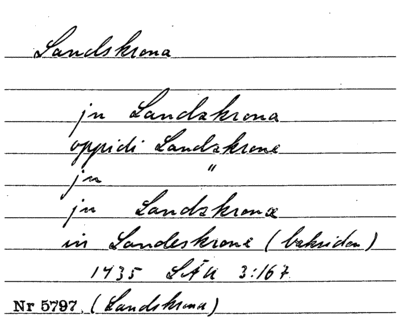 Landskrona
jn Landzkrona
oppidi Landzkrone
jn "
jn Landzkrone
in Landeskrone (baksidan)
1435 SÄU 3:167.
Nr 5797. (Landskrona)